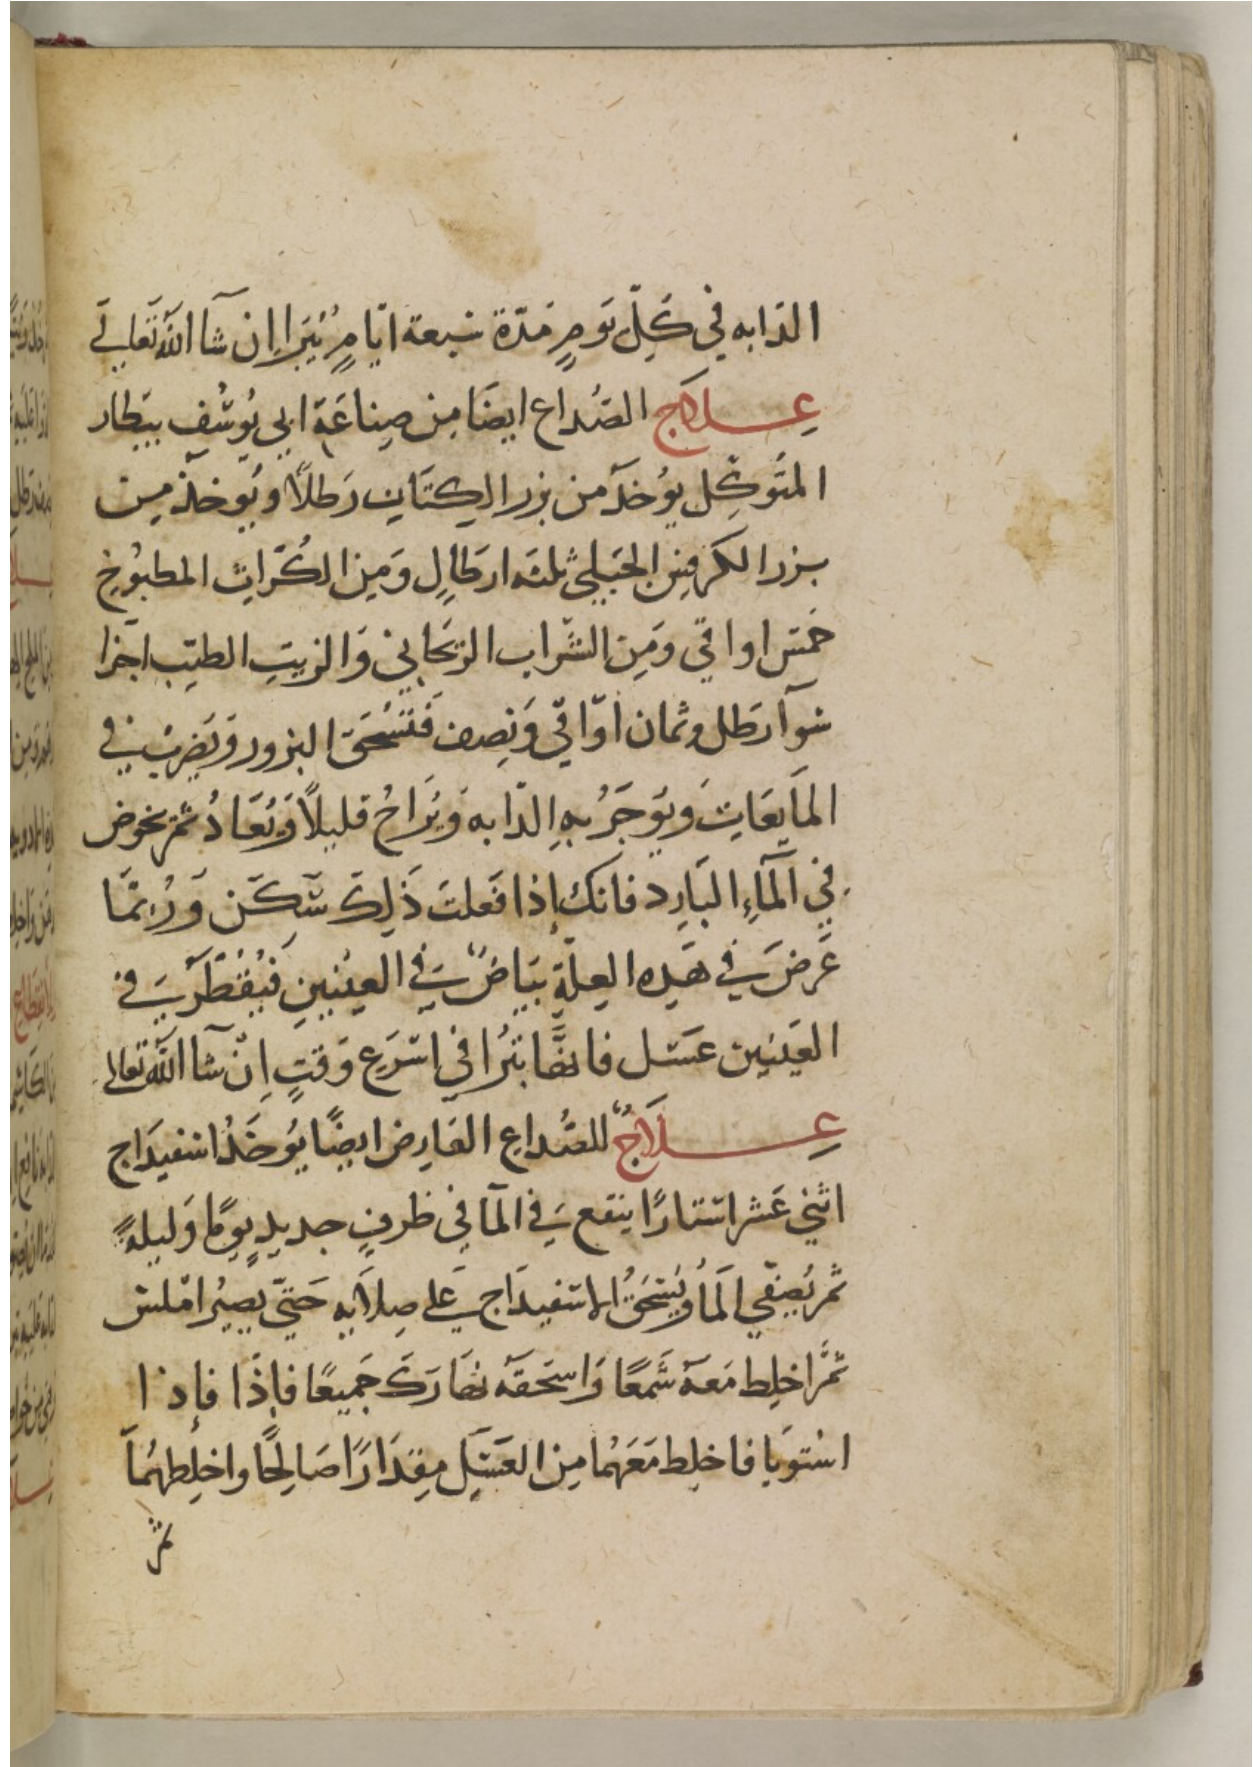 الدابه في كل يوم مدة سبعة ايام يبرا ان شا الله تعالى
علاج الصداع ايضا من صناعة ابي يوسف بيطار
المتوكل يوخذ من بزر الكتان رطلا ويوخذ من
بزر الكرفس الجبلي ثلثه ارطال ومن الكراث المطبوخ
خمس اواقي ومن الشراب الريحاني والزيت الطيب اجزا
سوآ رطل وثمان اواقي ونصف فتسحق البزور وتضرب في
المايعات ويوجر به الدابه ويراح قليلا ويعاد ثم يخوض
في المآء البارد فانك إذا فعلت ذلك سكن وربما
عرض في هذه العلة بياض في العينين فيقطر في
العينين عسل فانها تبرا في اسرع وقت ان شا الله تعالى
علاج للصداع العارض ايضا يوخذ اسفيداج
اثني عشر استارا ينقع في المآ في ظرف جديد يوما وليلة
ثم يصفي المآ ويسحق الاسفيداج على صلايه حتى يصير املس
ثم اخلط معه شمعا واسحقه نهارك جميعا فإذا فإذا
استويا فاخلط معهما من العسل مقدارا صالحا واخلطهما
ثم